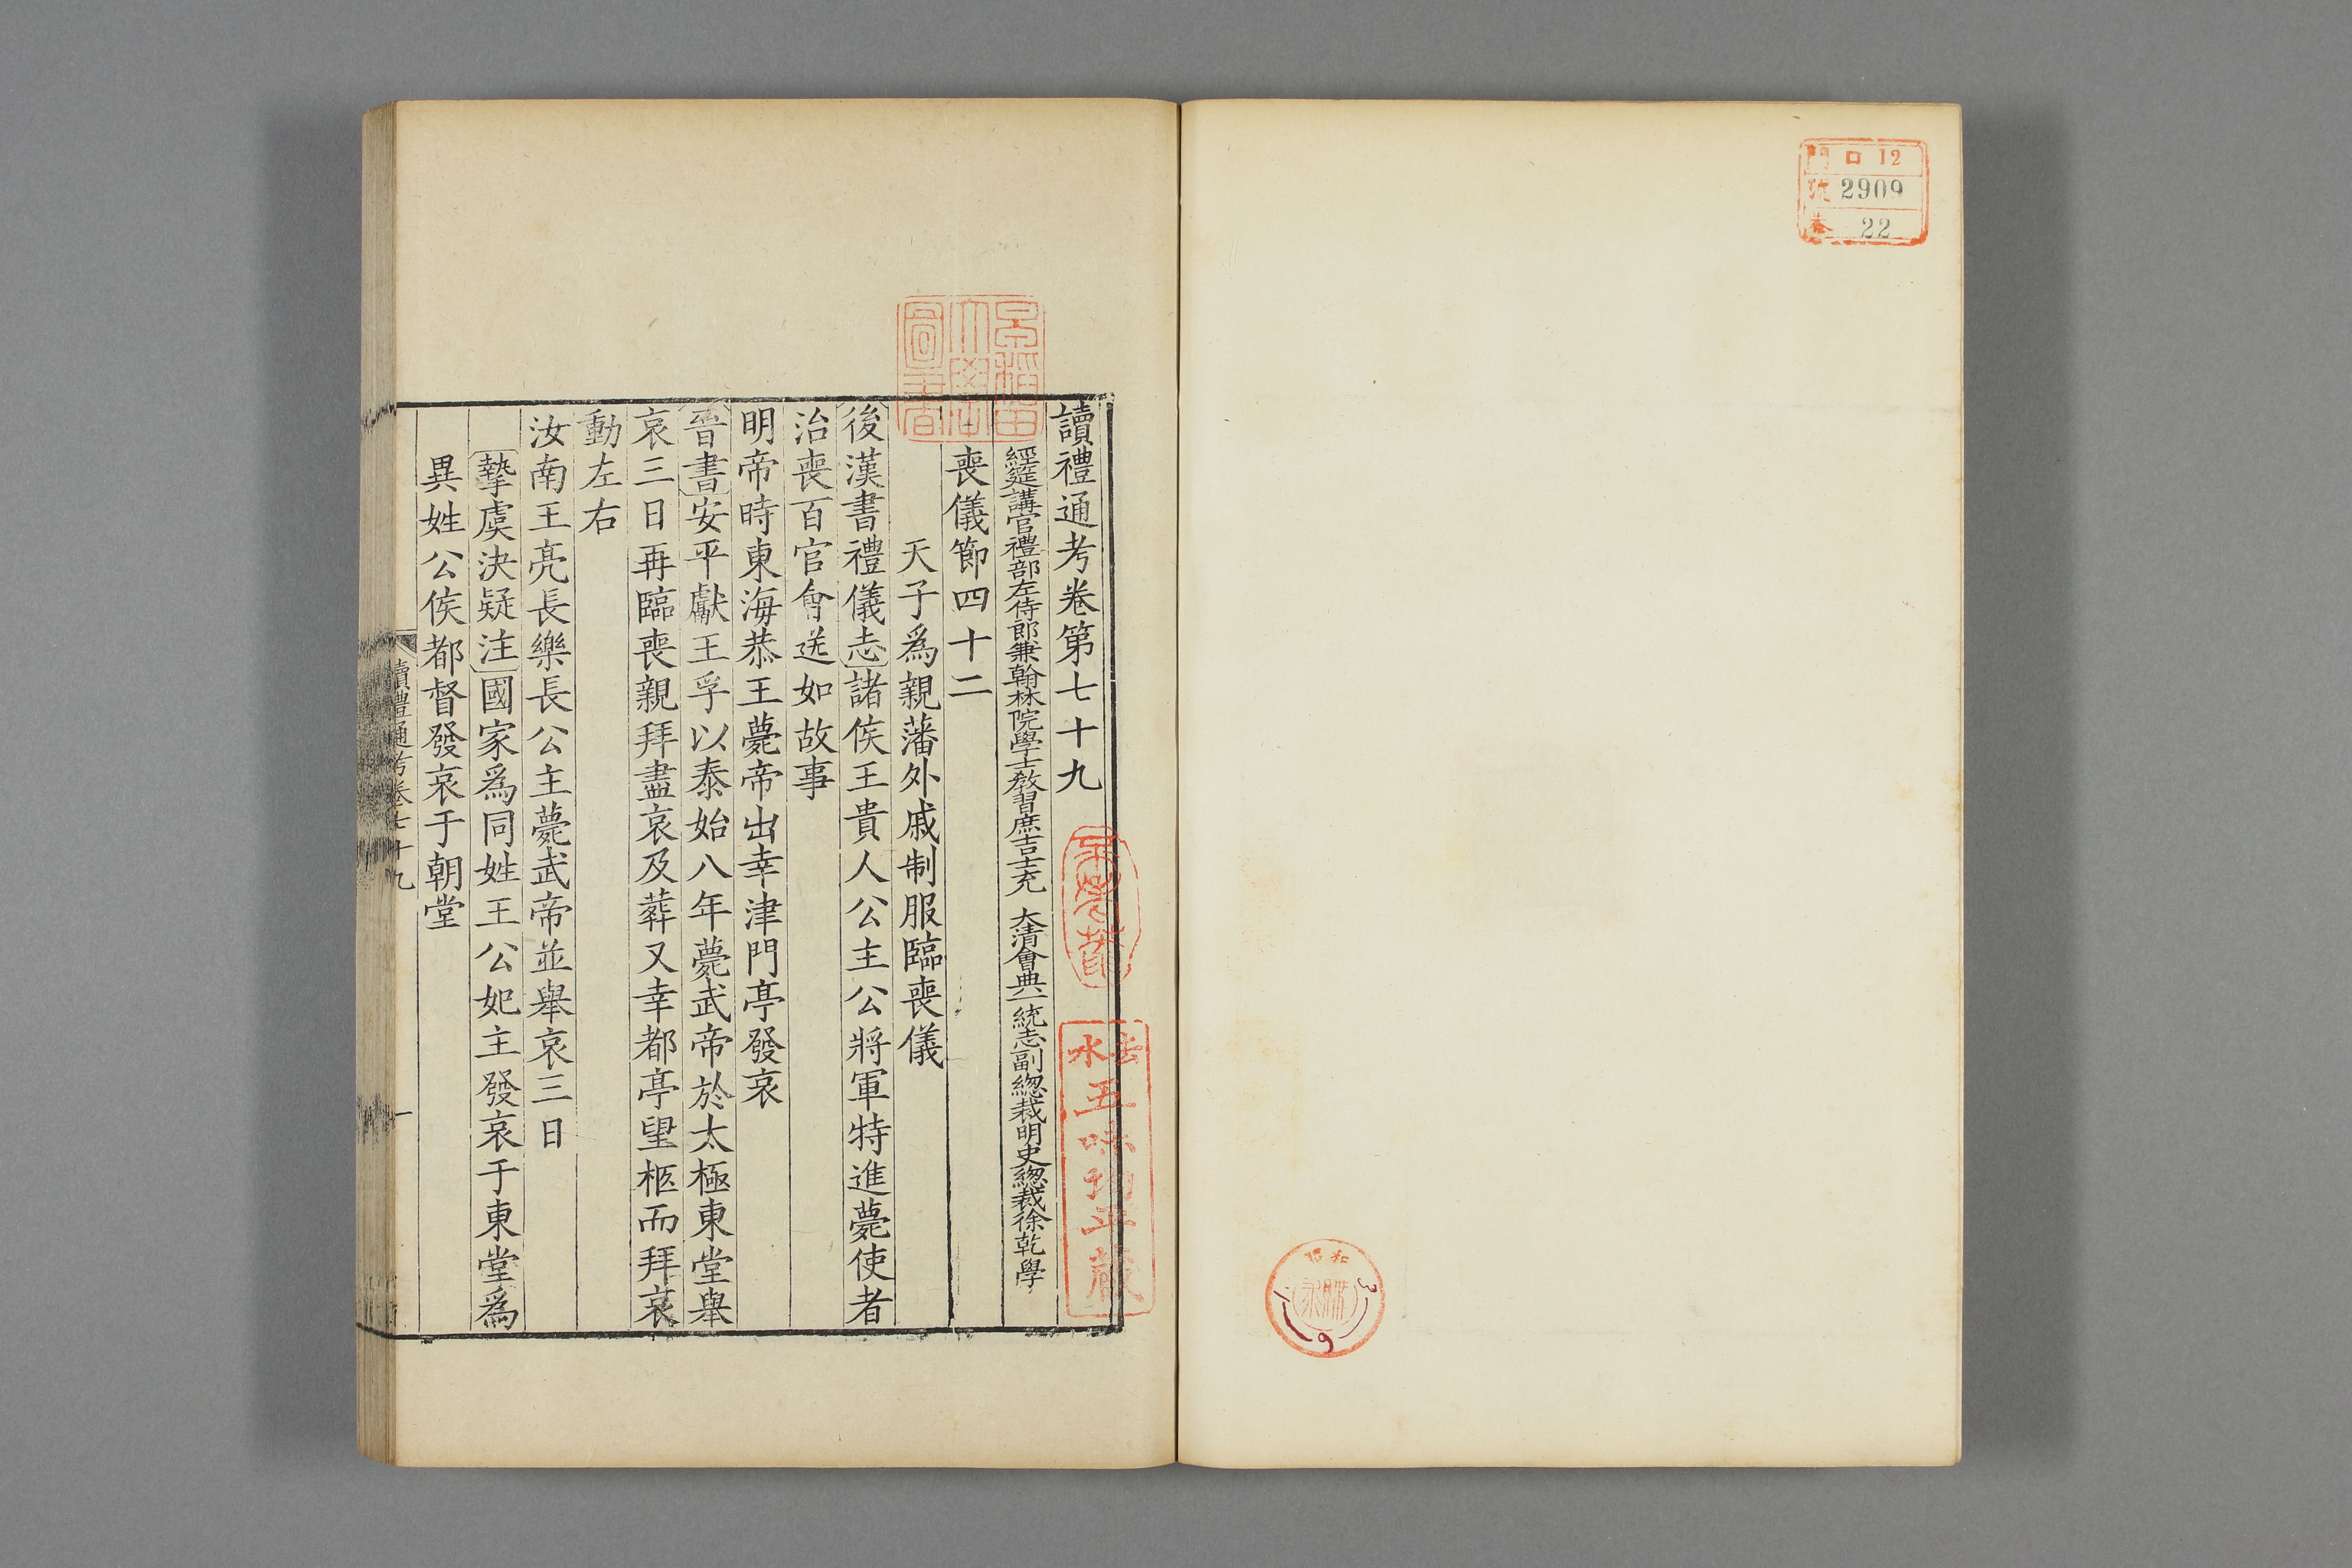 門 ロ 12
號 2909
巻 22
昭和
3
9
早稲田
大學
圖書
讀禮通考卷第七十九
經筵講官禮部左侍郎兼翰林院學士教習庶吉士充 大清會典一統志副總裁明史總裁徐乾學
喪儀節四十二
天子爲親藩外戚制服臨喪儀
後漢書禮儀志諸侯王貴人公主公將軍特進薨使者
治喪百官會送如故事
明帝時東海恭王薨帝出幸津門亭發哀
晉書安平獻王孚以泰始八年薨武帝於太極東堂舉
哀三日再臨喪親拜盡哀及葬又幸都亭望柩而拜哀
動左右
汝南王亮長樂長公主薨武帝並舉哀三日
摯虞決疑注國家爲同姓王公妃主發哀于東堂爲
異姓公侯都督發哀于朝堂
讀禮通考卷七十九
一